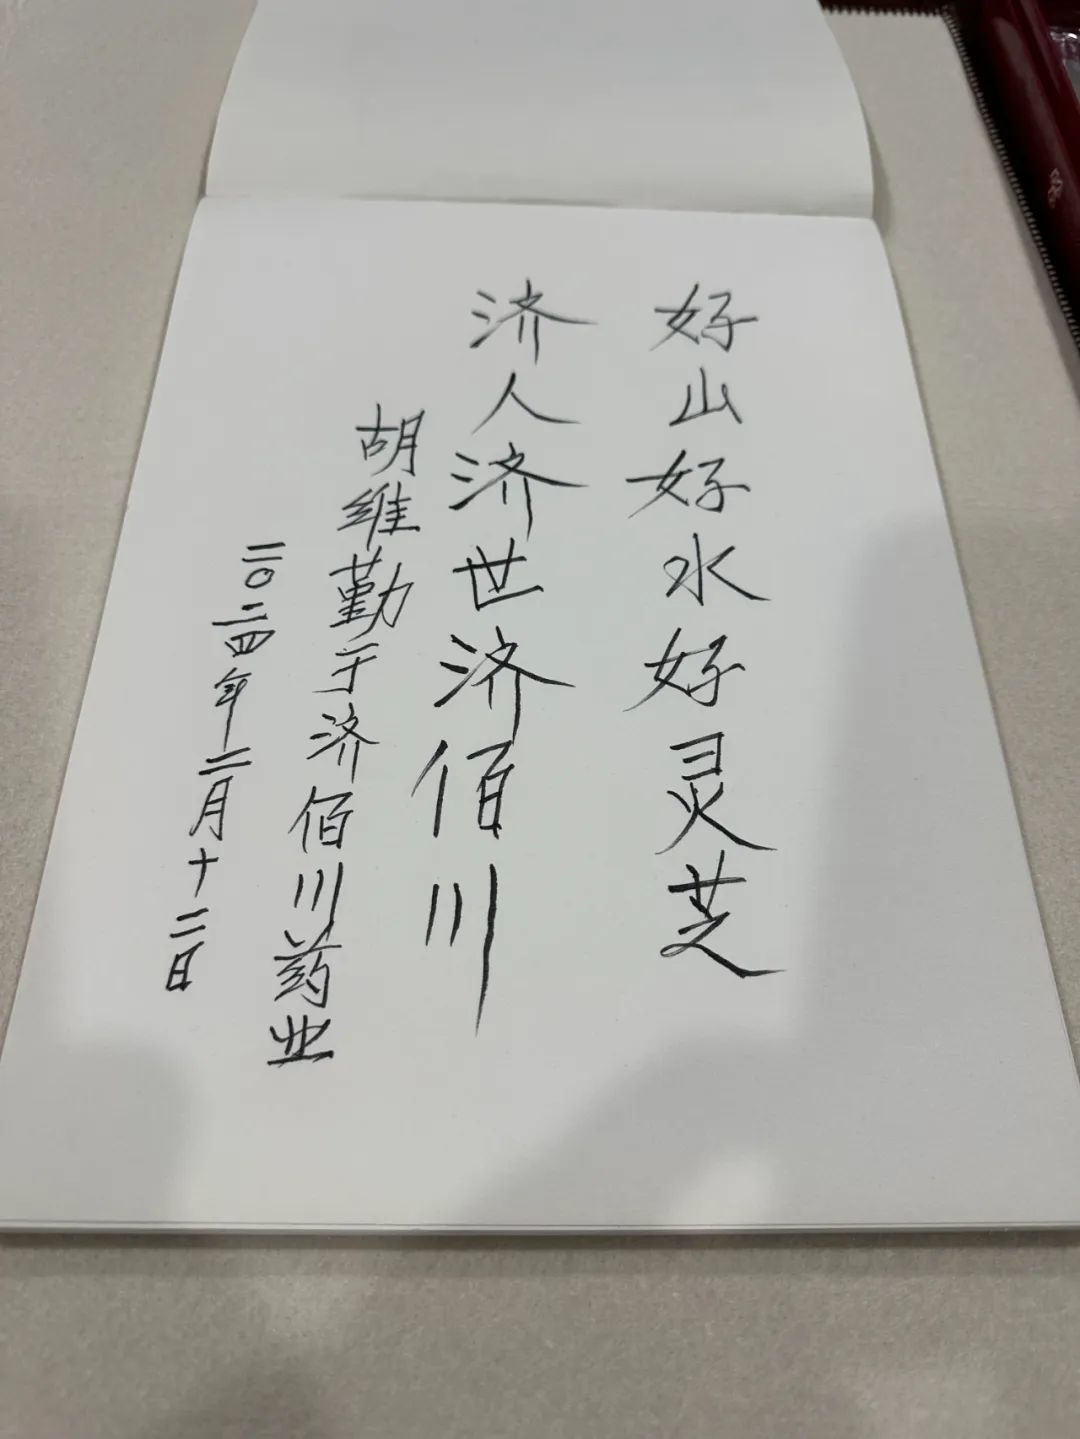 好山好水好灵芝
济人济世济佰川
胡维勤于济佰川药业
二〇二四年二月十二日